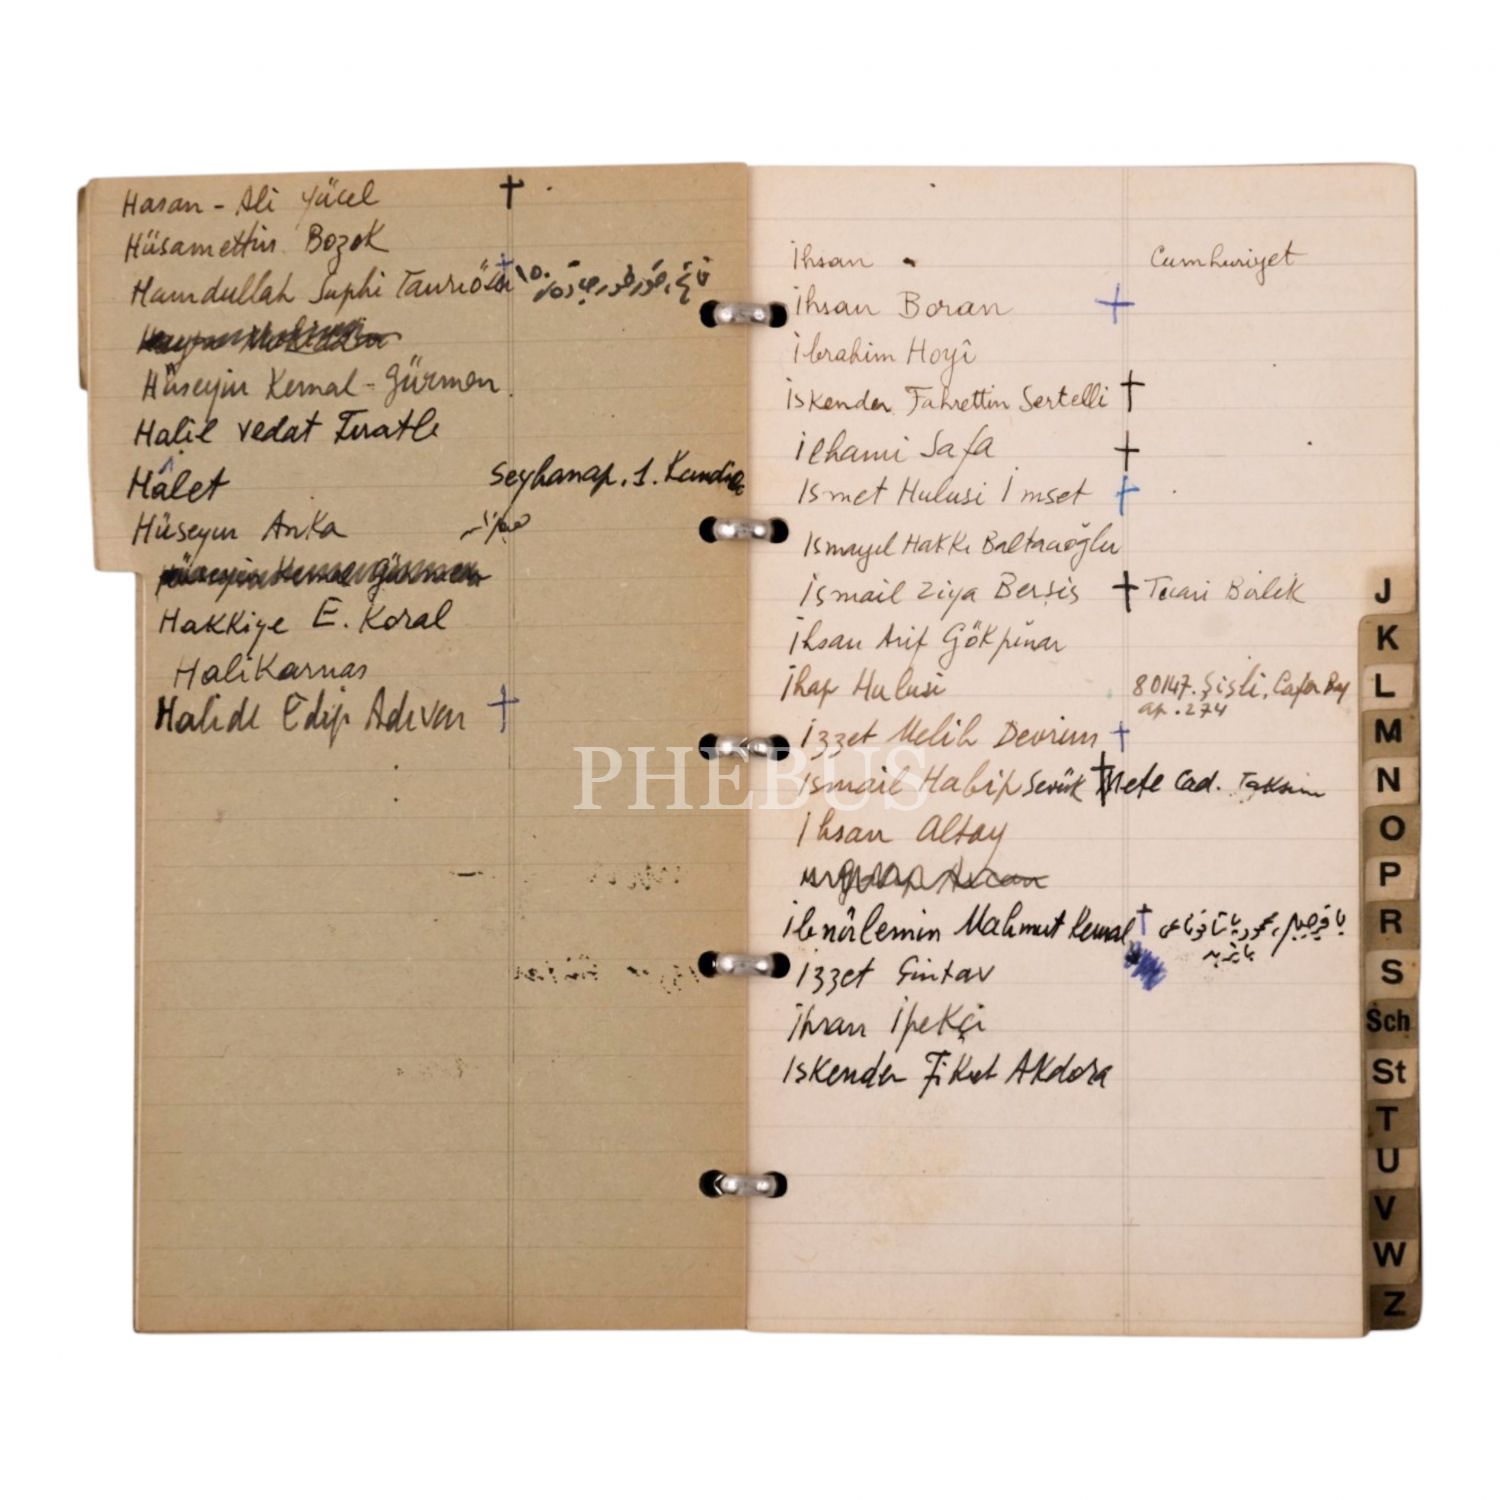 Hasan - Ali Yücel
Hüsamettin Bozok
Hamdullah Suphi Tanrıöver
Hüseyin Kemal - Gürmen
Halil Vedat Fıratlı
Hâlet Seyhan ap. 1.
Hüseyin Anka
Hüseyin Kemal Gürmen
Hakkiye E. Koral
Halikarnas
Halide Edip Adıvar
İhsan Cumhuriyet
İhsan Boran
İbrahim Hoyî
İskender Fahrettin Sertelli
İlhami Safa
İsmet Hulusi İmset
Ismayıl Hakkı Baltacıoğlu
İsmail Ziya Bersis Ticari Birlik
İhsan Arif Gökpınar
İhap Hulusi 80147. Şişli, Cafer Bey
ap. 274
İzzet Melih Devrim
İsmail Habip Sevük Mete Cad. Taksim
İhsan Altay
İbnülemin Mahmut Kemal
İzzet Sintav
İhsan İpekçi
İskender Fikret Akdora
J
K
L
M
N
O
P
R
S
Sch
St
T
U
V
W
Z
PHEBUS